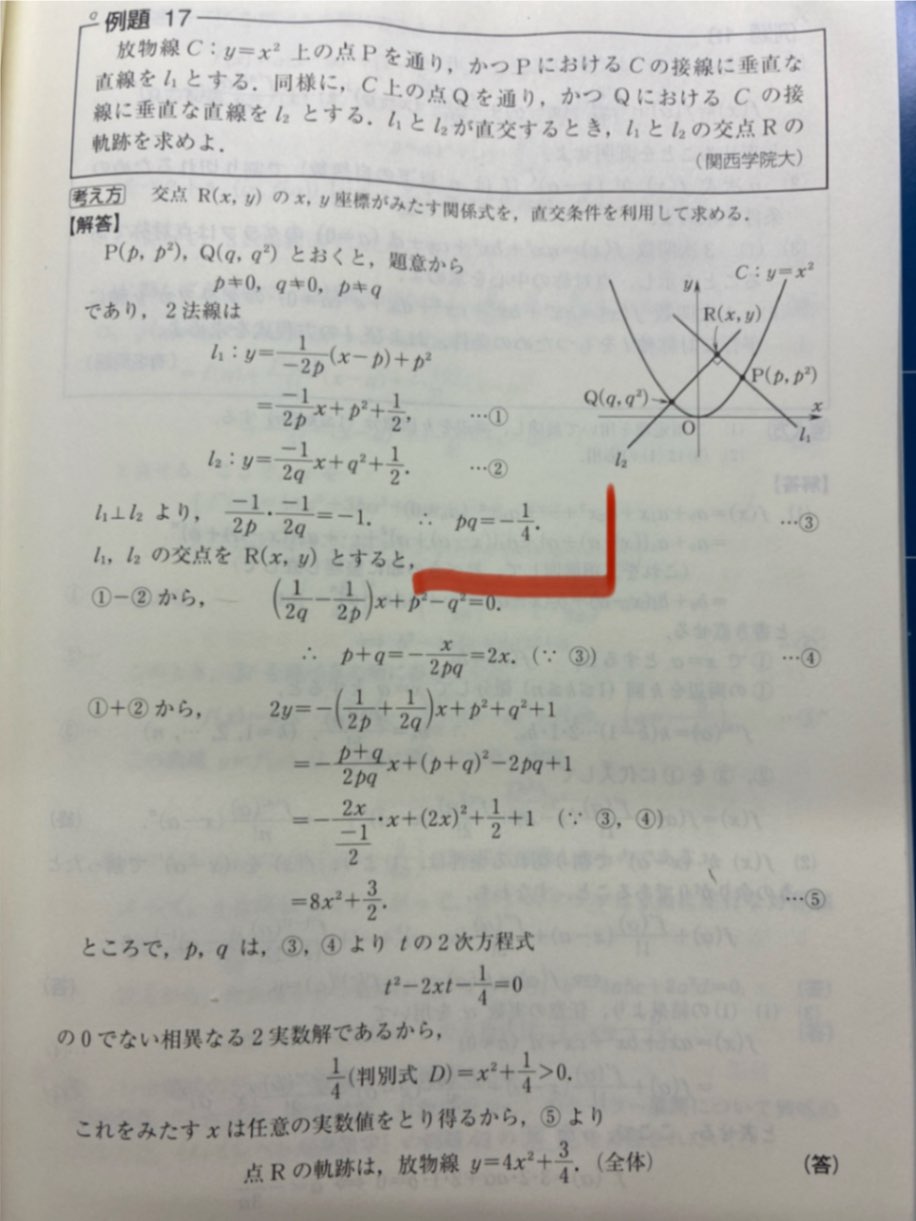 例題 17
放物線 C : y=x² 上の点 P を通り，かつ P における C の接線に垂直な
直線を l₁ とする．同様に，C 上の点 Q を通り，かつ Q における C の接
線に垂直な直線を l₂ とする．l₁ と l₂ が直交するとき，l₁ と l₂ の交点 R の
軌跡を求めよ．
（関西学院大）
考え方 交点 R(x, y) の x, y 座標がみたす関係式を，直交条件を利用して求める．
【解答】
P(p, p²), Q(q, q²) とおくと，題意から
p≠0, q≠0, p≠q
であり，2 法線は
l₁ : y=1/(-2p)(x-p)+p²
=(-1)/(2p)x+p²+1/2, …①
l₂ : y=(-1)/(2q)x+q²+1/2. …②
C : y=x²
y
R(x, y)
P(p, p²)
Q(q, q²)
O
x
l₁
l₂
l₁⊥l₂ より，(-1)/(2p)・(-1)/(2q)=-1. ∴ pq=-1/4. …③
l₁, l₂ の交点を R(x, y) とすると，
①-② から，(1/(2q)-1/(2p))x+p²-q²=0.
∴ p+q=-x/(2pq)=2x. (∵ ③) …④
①+② から，2y=-(1/(2p)+1/(2q))x+p²+q²+1
=-(p+q)/(2pq)x+(p+q)²-2pq+1
=-2x/((-1)/2)・x+(2x)²+1/2+1 (∵ ③, ④)
=8x²+3/2. …⑤
ところで，p, q は，③, ④ より t の 2 次方程式
t²-2xt-1/4=0
の 0 でない相異なる 2 実数解であるから，
1/4(判別式 D)=x²+1/4>0.
これをみたす x は任意の実数値をとり得るから，⑤ より
点 R の軌跡は，放物線 y=4x²+3/4. (全体) （答）